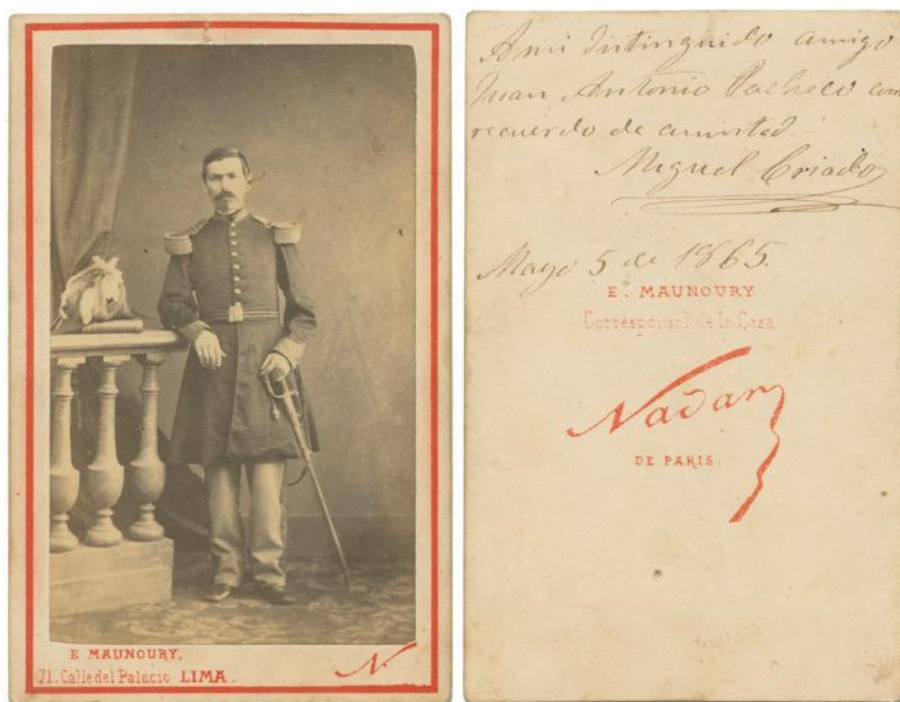 E MAUNOURY,
71. Calle del Palacio LIMA.
N
A mi distinguido amigo
Juan Antonio Pacheco com
recuerdo de amistad
Miguel Criado
Mayo 5 de 1865.
E. MAUNOURY
Corresponsal de la Casa
Nadar
DE PARIS.